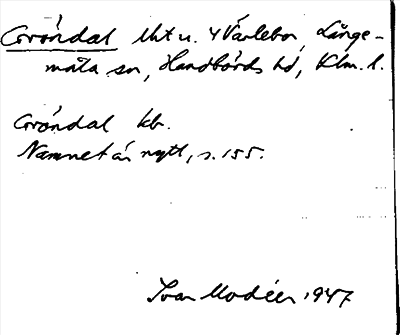 Gröndal lht u. 4 Varlebo, Långe-
måla sn, Handbörds hd, Klm. l.
Gröndal kb.
Namnet är nytt, s. 155.
Ivar Modéer 1947